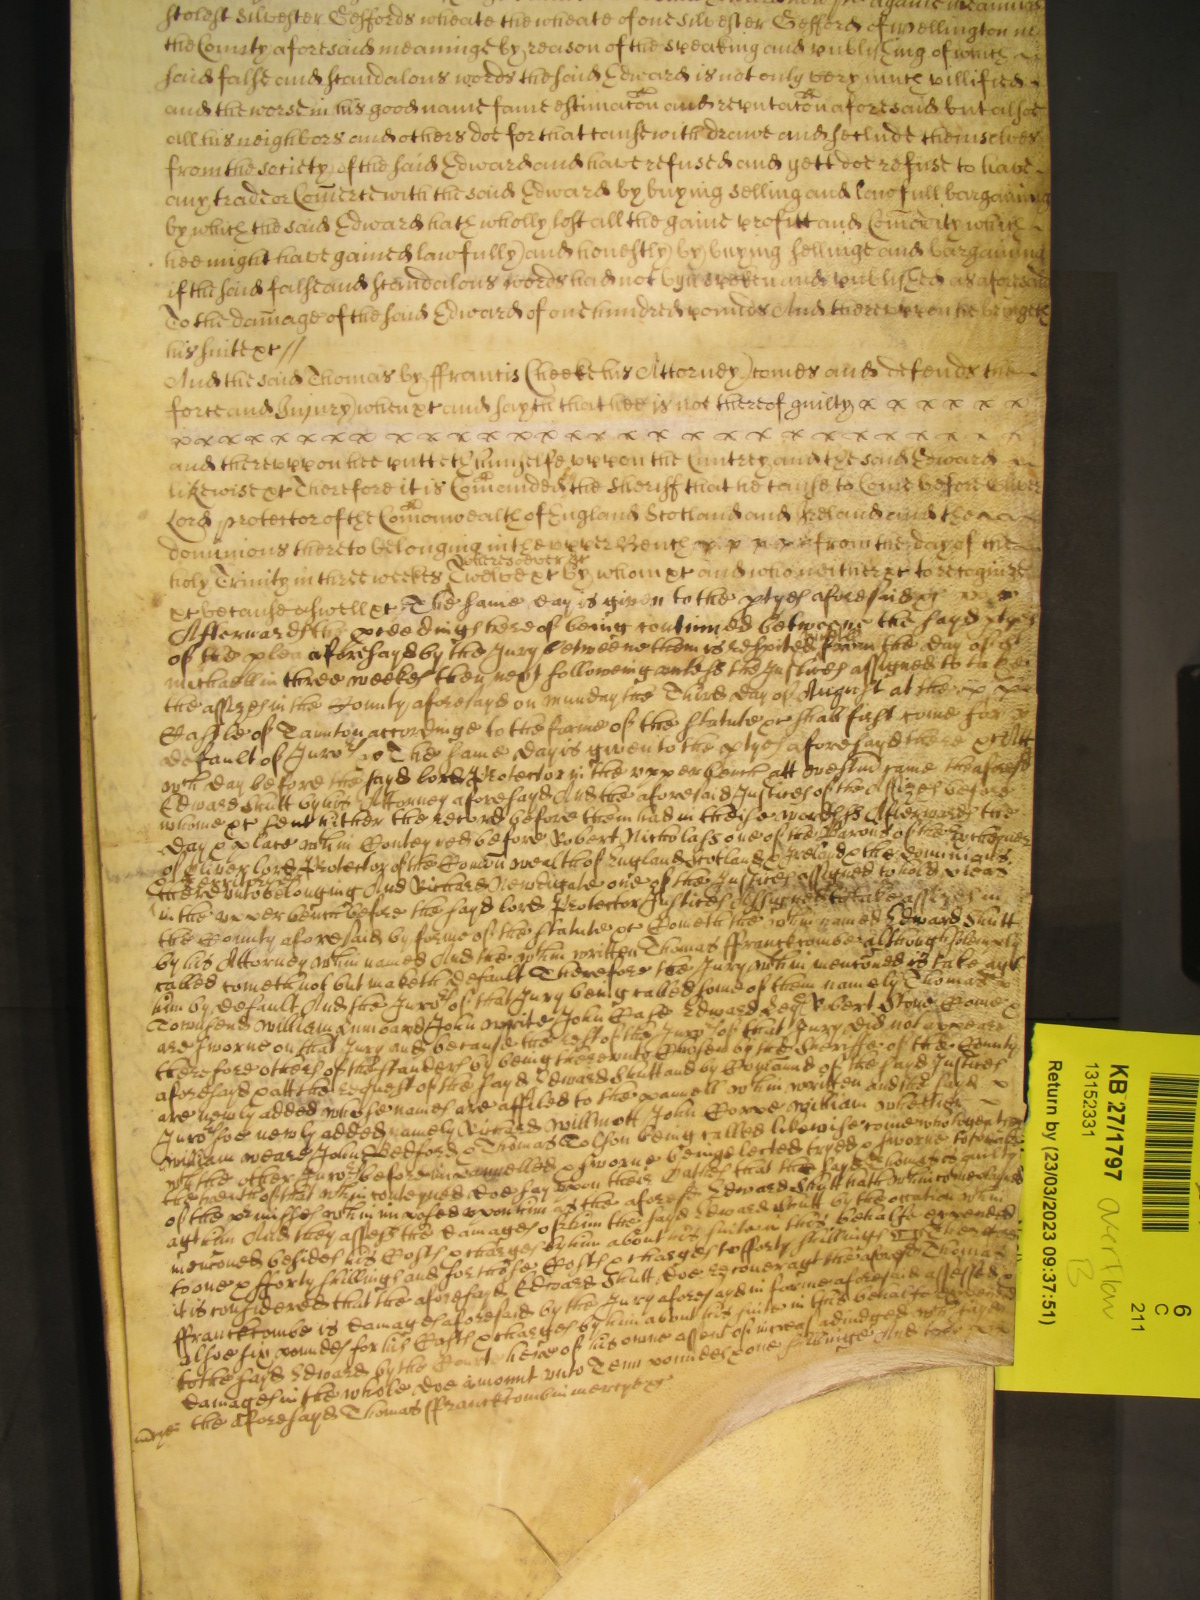 stolest Silvester Geffords wheate the wheate of one Silvester Gefford of Wellington in
the County aforesaid meaninge by reason of the speaking and publishing of which
said false and scandalous words the said Edward is not only very much villified
and the worse in his good name fame estimacon and reputacon aforesaid but alsoe
all his neighbors and others doe for that cause withdrawe and seclude themselves
from the society of the said Edward and have refused and yett doe refuse to have
any trade or Comerce with the said Edward by buying selling and lawfull bargaining
by which the said Edward hath wholly lost all the gaine profitt and Comodity which
hee might have gained lawfully and honestly by buying sellinge and bargaining
if the said false and scandalous words had not byn spoken and published as aforesaid
To the damage of the said Edward of one hundred pounds And thereuppon he bringeth
his suite &c //
And the said Thomas by ffrancis Cheeke his Attorney comes and defends the
force and Injury when &c and sayth that hee is not thereof guilty x x x x x x
x x x x x x x x x x x x x x x x x x x x
and thereuppon hee putteth himselfe uppon the Cuntrey and the said Edward
likewise &c Therefore it is Comanded the Sheriff that he cause to Come before Oliver
Lord Protector of the Comonwealth of England Scotland and Ireland and the
dominions thereto belonging in the upper Bench x x x x from the day of the
holy Trinity in three weekes wheresoever &c Twelve &c by whom &c and who neither &c to recognize
&c because aswell &c The same day is given to the ptyes aforesaid &c
Afterwards the pceedings hereof being continued betweene the sayd ptyes
of the plea aforesayd by the Jury betweene them is respited from the day of St
Michaell in three weekes then next following unless the Justices assigned to take
the assizes in the County aforesayd on Munday the Third day of August at the
Castle of Taunton accordinge to the forme of the statute &c shall first come for
default of Juro:rs &c The same day is given to the ptyes aforesayd there &c Att
wch day before the sayd lord Protector in the upper bench att Westmr came the aforesd
Edward Shutt by his Attorney aforesayd And the aforesaid Justices of the Assizes before
whome &c sent hither the record before them had in theise words ss Afterwards the
day & place wthin Conteyned before Robert Nicholas one of the Barons of the Exchequer
of Oliver lord Protector of the Comon wealth of England Scotland & Ireland & the dominions
there unto belonging And Richard Newdigate one of the Justices assigned to hold pleas
in the upper bench before the sayd lord Protector Justices Assigned to take assizes in
the County aforesaid by forme of the statute &c Cometh the wthin named Edward Shutt
by his Attorney wthin named And the wthin written Thomas ffranckcombe although solemply
called cometh not but maketh default Therefore the Jury wthin mencioned is take agt
him by default And the Juro:rs of that Jury being called some of them namely Thomas
Townsend William John White John Robert Stone Come
are sworne on that Jury and because the rest of the Juro:rs of that Jury did not appeare
therefore others of the standers by being thereunto Chosen by the Sheriffe of the County
aforesayd & att the request of the sayd Edward Shutt and by Comaund of the sayd Justices
are newly added whose names are affiled to the pannell wthin written and the sayd
Juro:rs soe newly added namely Richard Willmott John William
William Weare John Bedford & Thomas Tolson being called likewise come who together
wth the other Juro:rs before impannelled & sworne being elected tryed & sworne to
the truth of that wthin conteyned doe say uppon their Oathes that the sayd Thomas is guilty
of the premisses wthin imposed upon him as the aforesd Edward Shutt hath wthin complayned
agt him And they assess the damages of him the sayd Edward Shutt by the occasion wthin
mencioned besides his Costs & charges by him about his suite in this behalfe expended
to one & fforty shillings and for those Costs & charges to fforty shillings Therefore
it is considered that the aforesayd Edward Shutt doe recover agt the aforesd Thomas
ffranckcombe is damages aforesaid by the Jury aforesayd in forme aforesaid assessed &
alsoe six poundes for his Costs & charges by him about his suite in this behalfe
to the sayd Edward by the Court here of his owne assent of increase adjudged wch sayd
damages in the whole doe amount unto Tenn poundes & one shillinge And
the aforesayd Thomas ffranckcomb in mercy &c
KB 27/1797
13152331
Return by (23/03/2023 09:37:51)
overflow
B
6
C
211